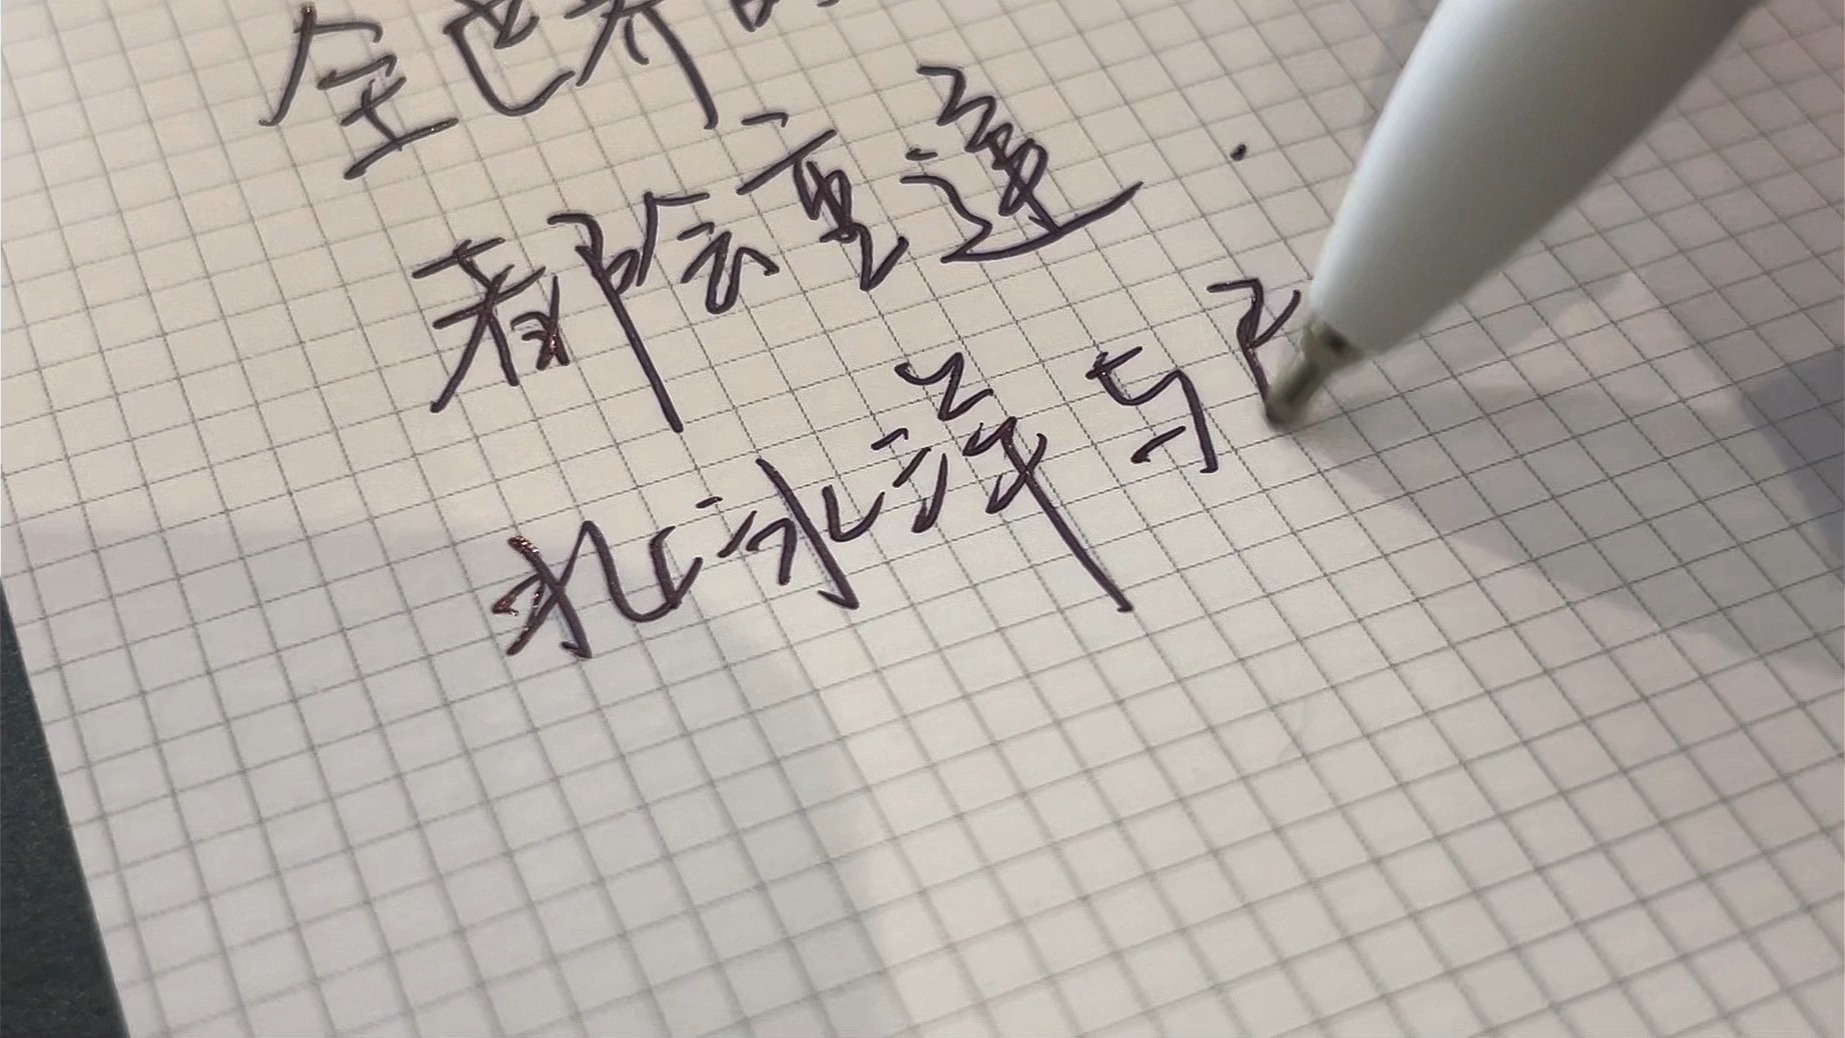 全世界
都会重逢
北冰洋与